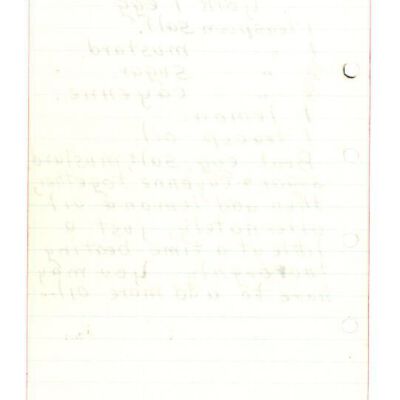 1 egg
1 teaspoon salt.
1 " mustard.
" sugar.
" cayenne.
1 lemon
1 oil
Beat egg, salt, mustard
cayenne together,
then add lemon & oil
alternately, just a
little at a time beating
You may
have to add more oil.